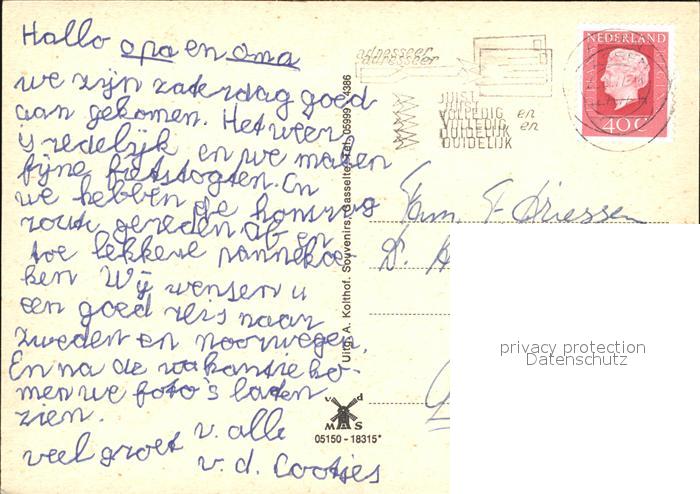 Hallo opa en oma
we zijn zaterdag goed
aan gekomen. Het weer
is redelijk en we maken
fijne fietstogten. En
we hebben de honsrug
route gereden Af en
toe lekkere panneko-
ken Wij wensen u
een goed reis naar
zweden en noorwegen.
En na de vakantie ko-
men we foto's laten
zien.
veel groet v. alle
v. d. Cootjes
Uitg. A. Kolthof. Souvenirs. Gasselte. Tel. 05999 - 4386
v d
MAS
05150 - 18315*
adresseer
adresseer
JUIST
VOLLEDIG en
VOLLEDIG en
DUIDELIJK
DUIDELIJK
NEDERLAND
40 C
Fam. F. Driessen
D.
privacy protection
Datenschutz